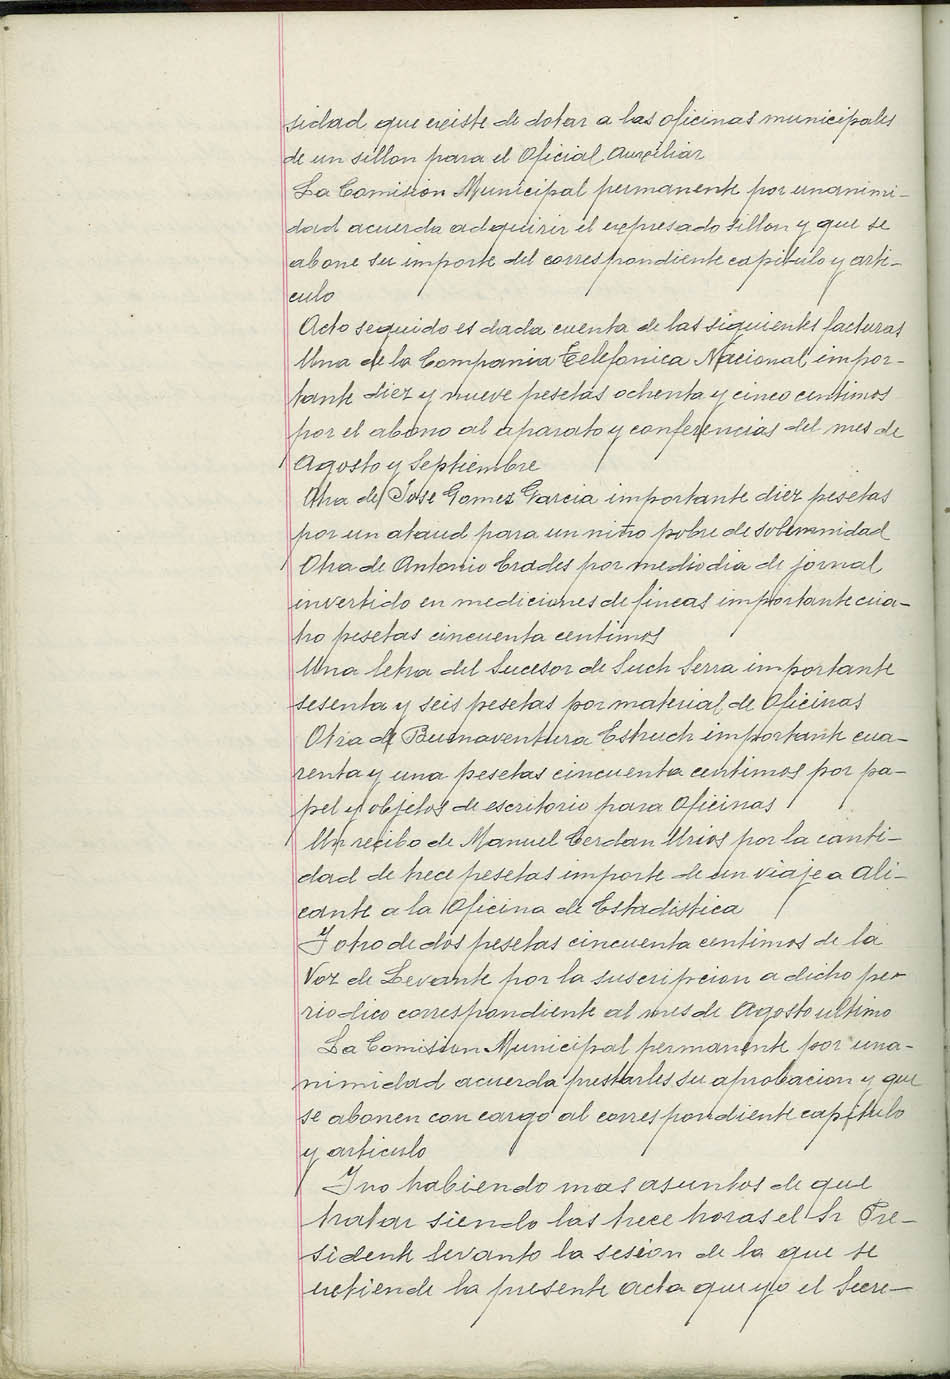 sidad que existe de dotar a las oficinas municipales
de un sillon para el Oficial Auxiliar
La Comision Municipal permanente por unanimi-
dad acuerda adquirir el expresado sillon y que se
abone su importe del correspondiente capitulo y arti-
culo
Acto seguido es dada cuenta de las siguientes facturas
Una de la Compania Telefonica Nacional impor-
tante diez y nueve pesetas ochenta y cinco centimos
por el abono al aparato y conferencias del mes de
Agosto y Septiembre
Otra de Jose Gomez Garcia importante diez pesetas
por un ataud para un niño pobre de solemnidad
Otra de Antonio Crades por medio dia de jornal
invertido en mediciones de fincas importante cua-
tro pesetas cincuenta centimos
Una letra del Sucesor de Such Serra importante
sesenta y seis pesetas por material de Oficinas
Otra de Buenaventura Estruch importante cua-
renta y una pesetas cincuenta centimos por pa-
pel y objetos de escritorio para Oficinas
Un recibo de Manuel Cerdan Urios por la canti-
dad de trece pesetas importe de un viaje a Ali-
cante a la Oficina de Estadistica
Y otro de dos pesetas cincuenta centimos de la
Voz de Levante por la suscripcion a dicho pe-
riodico correspondiente al mes de Agosto ultimo
La Comision Municipal permanente por una-
nimidad acuerda prestarles su aprobacion y que
se abonen con cargo al correspondiente capitulo
y articulo
Y no habiendo mas asuntos de que
tratar siendo las trece horas el Sr Pre-
sidente levanto la sesion de la que se
extiende la presente acta que yo el Secre-